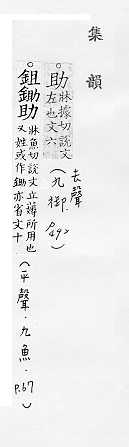 集韻
助 牀據切說文
左也文六
(去聲·九御·P.492)
鉏鋤助 牀魚切說文立薅所用也
又姓或作鋤亦省文十
(平聲·九魚·P.67)